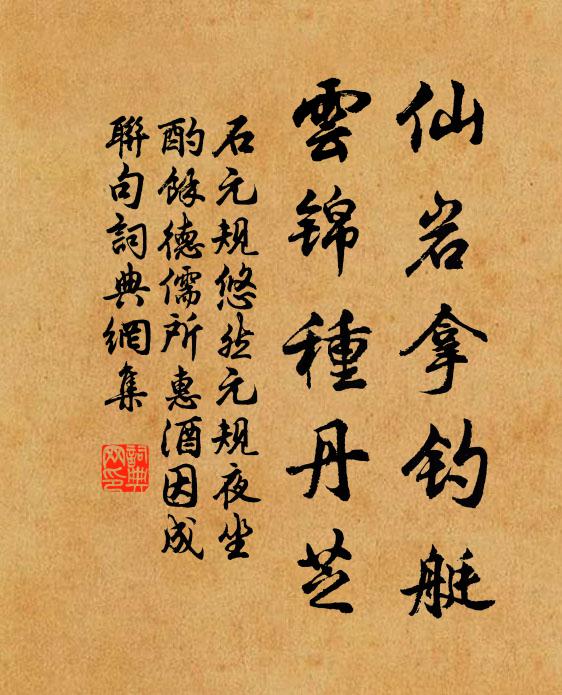 仙岩拿钓艇
雲锦種丹芝
石元规悠然元规夜坐
酌馀德儒所惠酒因成
聯句詞典網集
詞典
网印